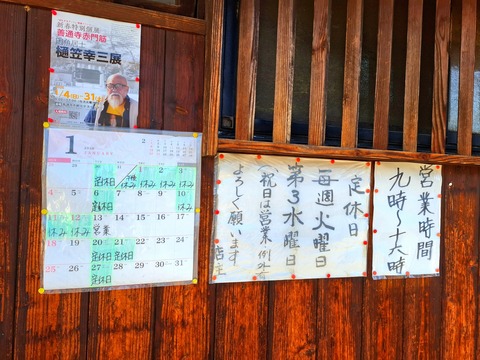 新春特別個展
善通寺赤門筋
樋笠幸三展
1/4(日)~31
1
2
1 2 3
定休日 休み 休み 休み
4 5 6 7 8 9 10
定休日 休み
11 12 13 14 15 16 17
休み 休み 営業
18 19 20 21 22 23 24
定休日 定休日
25 26 27 28 29 30 31
定休日
定休日
毎週火曜日
第3水曜日
(祝日は営業(例外)
よろしく願います
店主
営業時間
九時~十六時